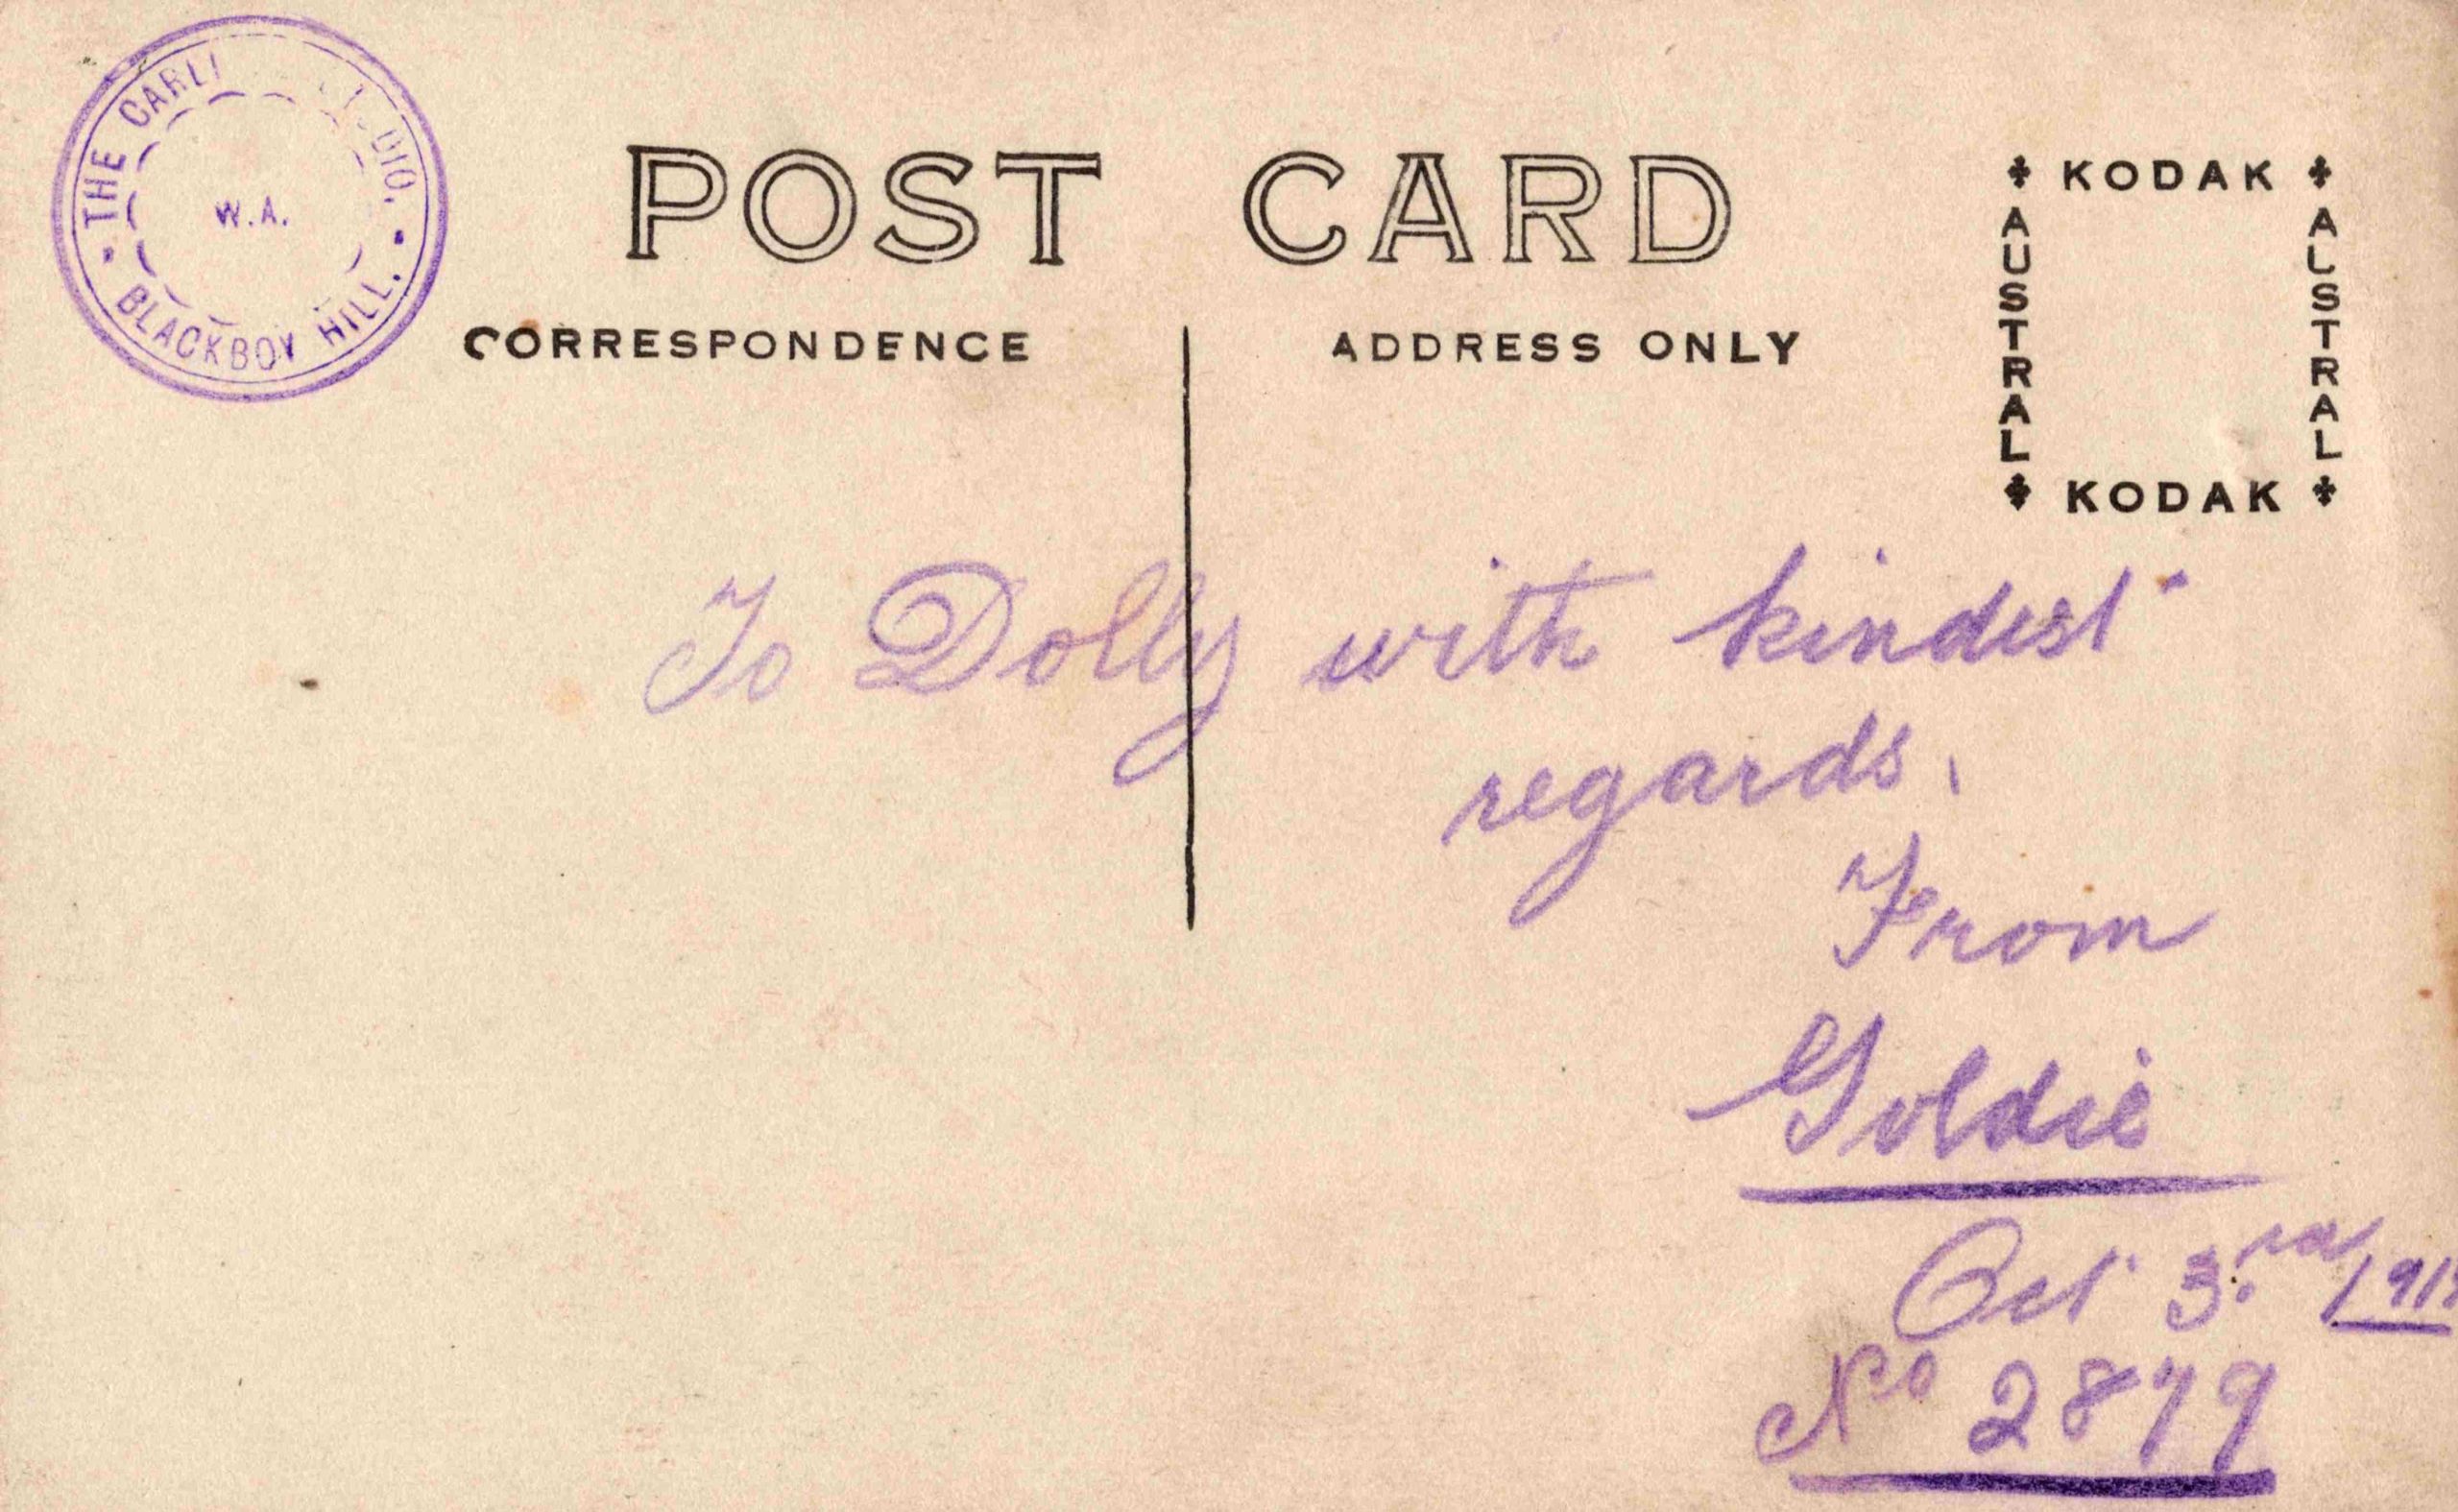 THE CARL
W.A.
BLACKBOY HILL.
POST CARD
CORRESPONDENCE
ADDRESS ONLY
KODAK
AUSTRAL
AUSTRAL
KODAK
To Dolly with kindest
regards.
From
Goldie
Oct 3rd
No 2879